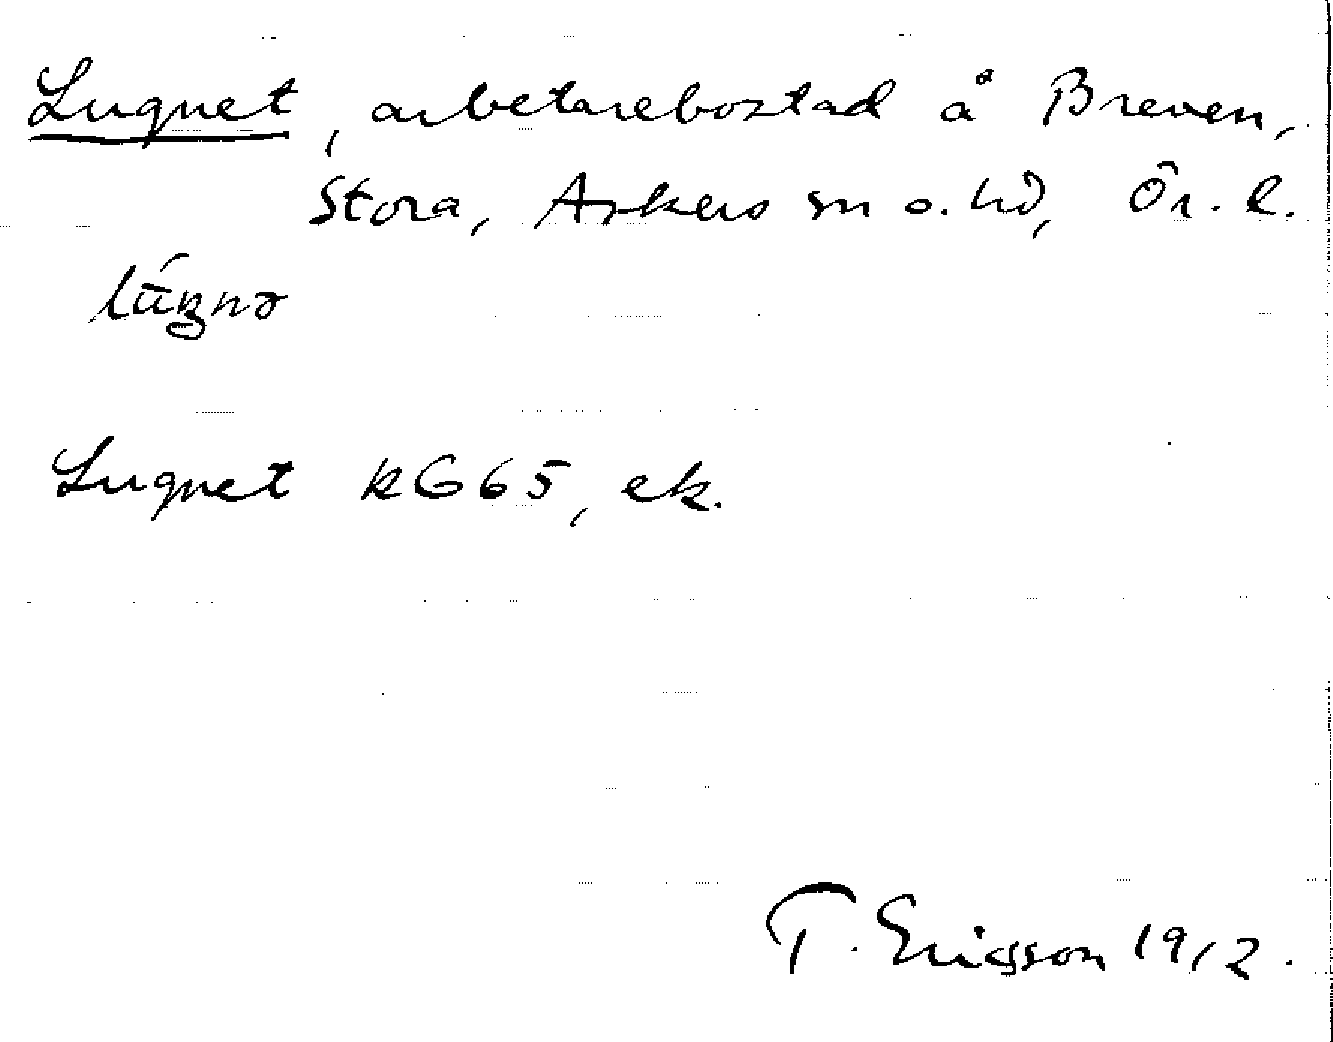 Lugnet, arbetarebostad å Breven,
Stora, Askers sn o. hd, Ör. l.
Lugnet RG65, ek.
T. Ericsson 1912.